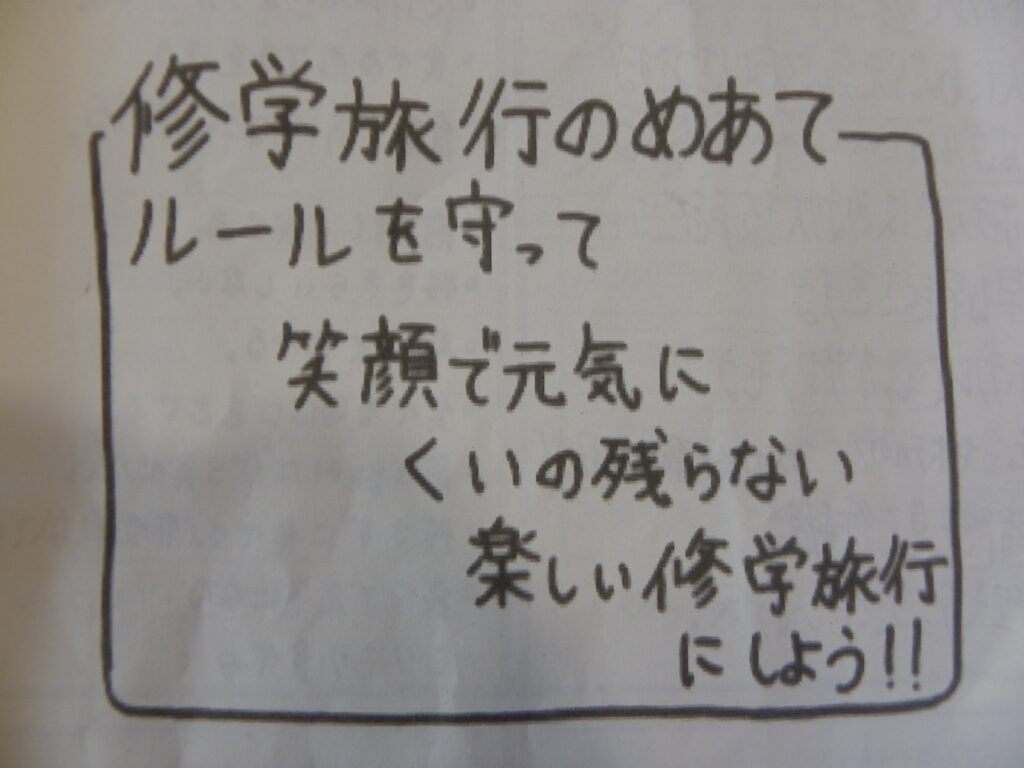 修学旅行のめあて
ルールを守って
笑顔で元気に
くいの残らない
楽しい修学旅行
にしよう!!